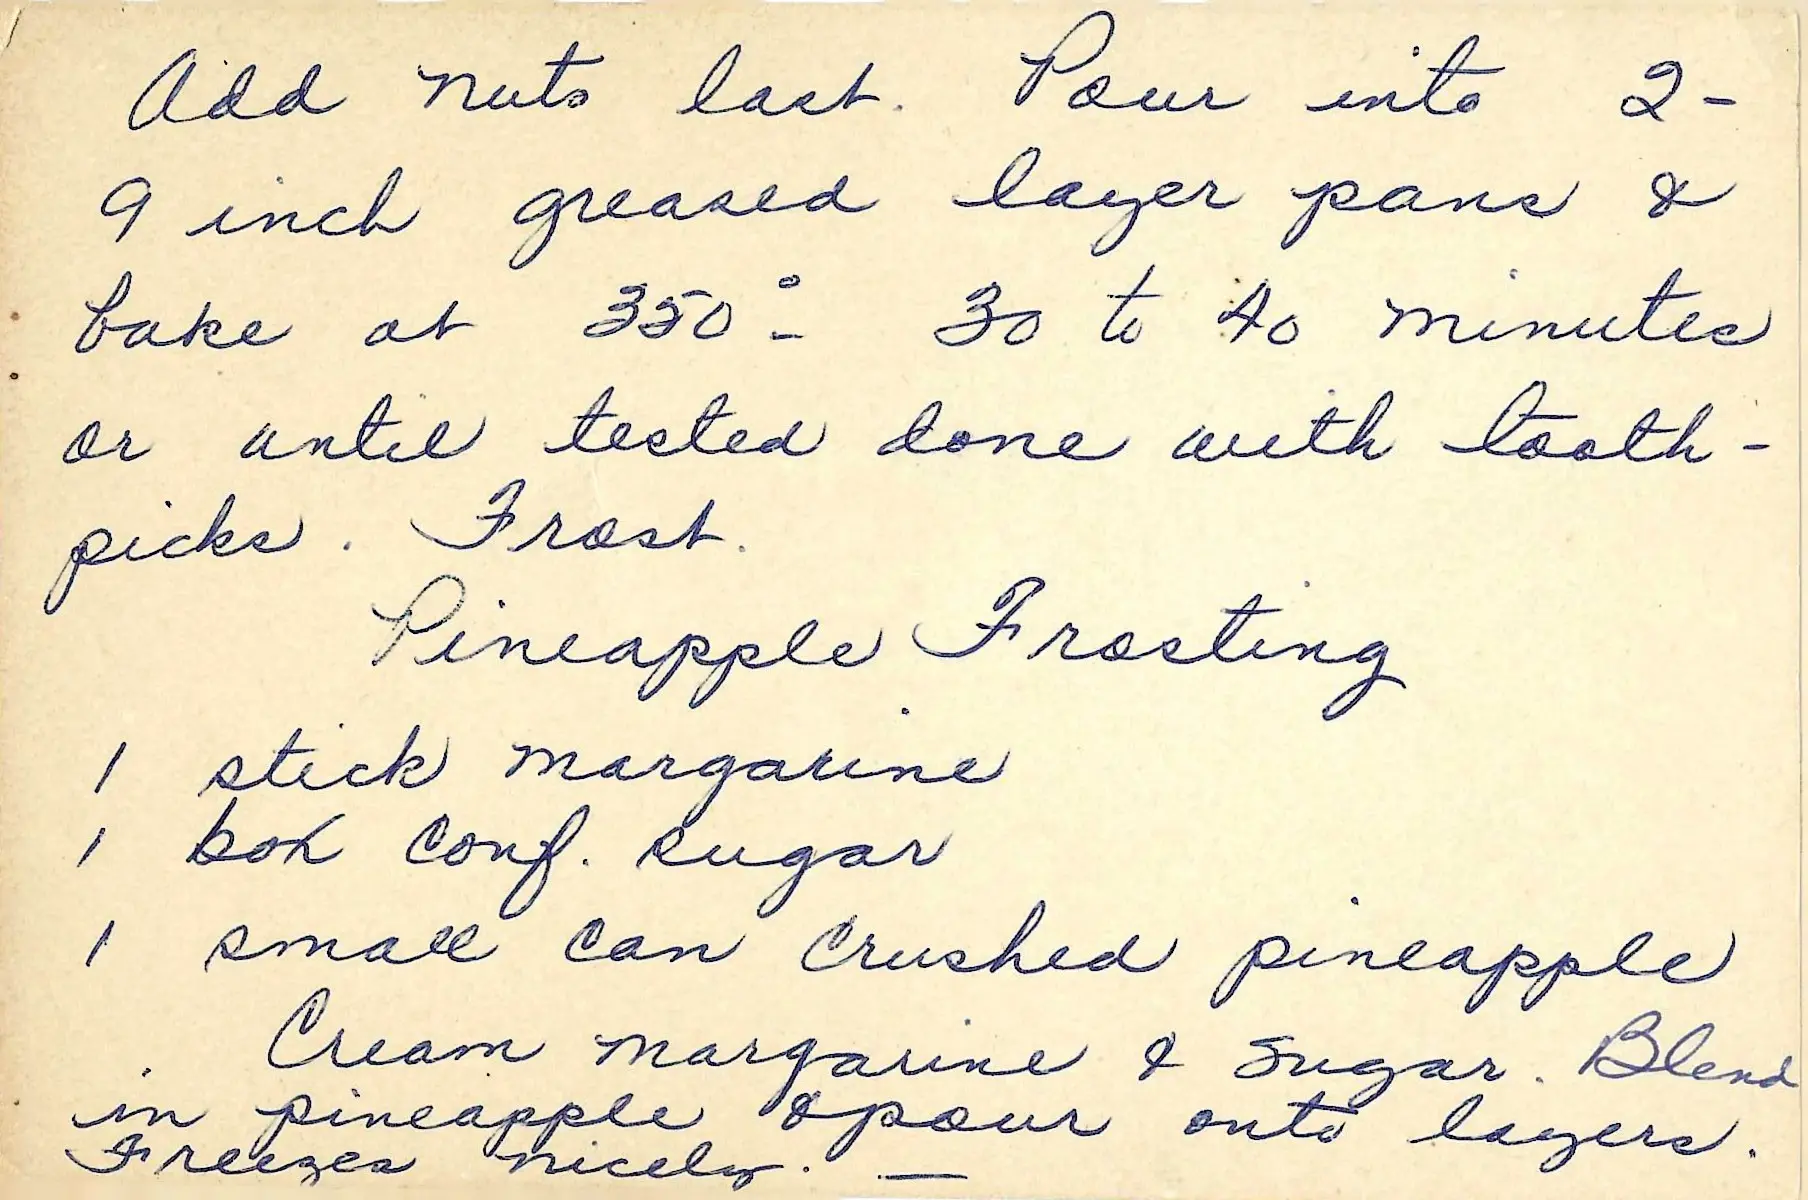 Add nuts last. Pour into 2-
9 inch greased layer pans &
bake at 350° - 30 to 40 minutes
or until tested done with tooth-
picks. Frost.
Pineapple Frosting
1 stick margarine
1 box conf. sugar
1 small can crushed pineapple
Cream margarine & sugar. Blend
in pineapple & pour onto layers.
Freezes nicely. —